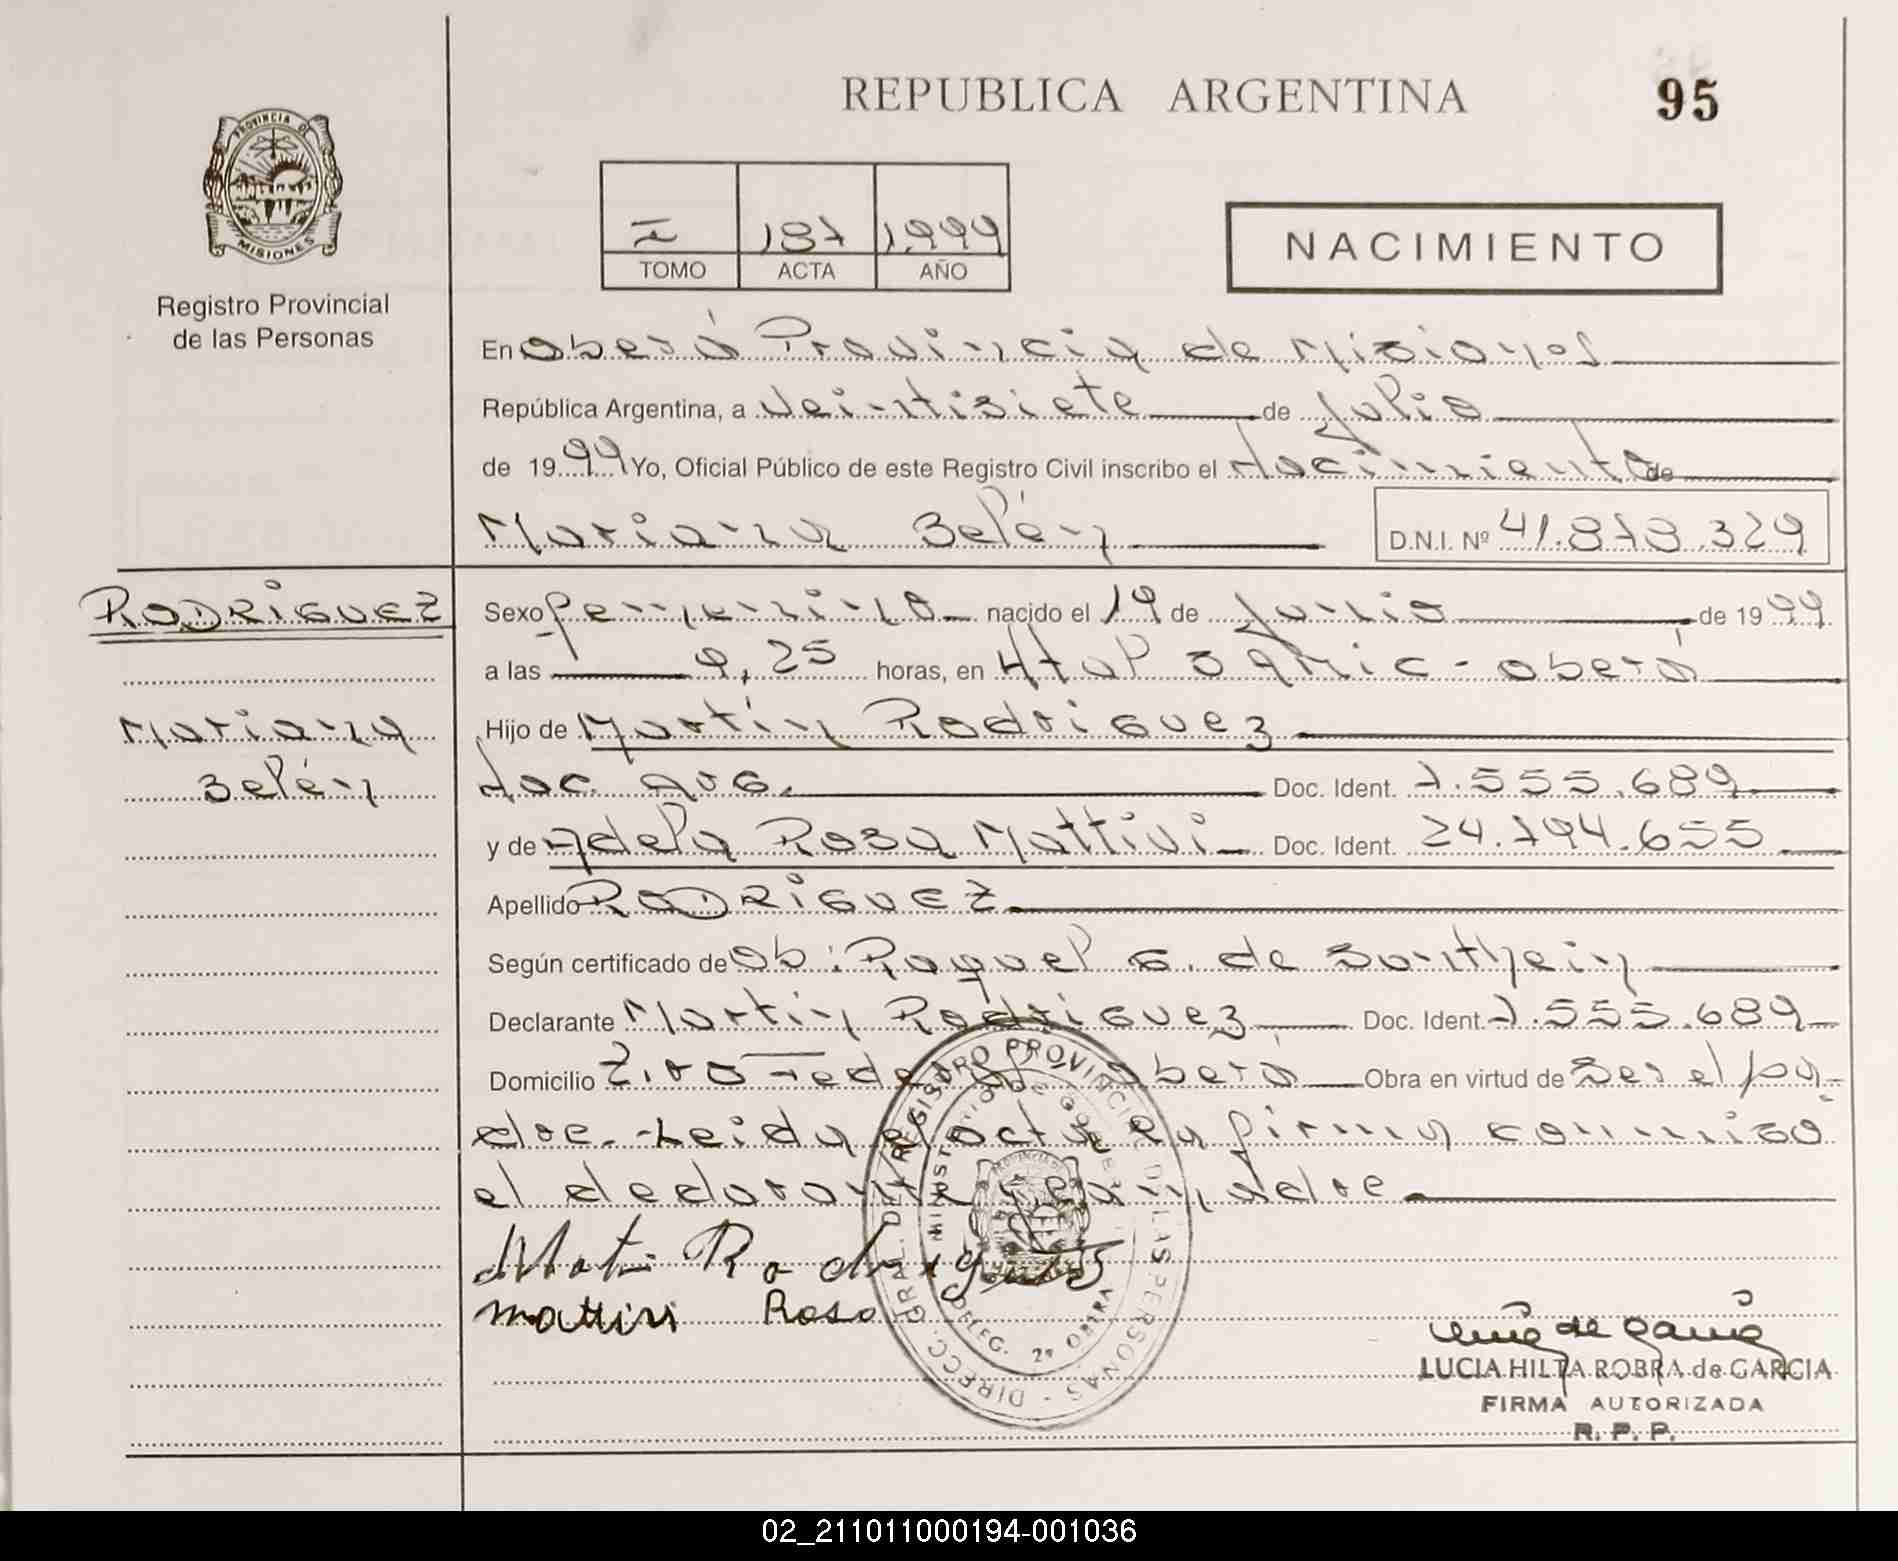 REPUBLICA ARGENTINA
95
PROVINCIA DE MISIONES
Registro Provincial
de las Personas
I 187 1999
TOMO ACTA AÑO
NACIMIENTO
En Oberá Provincia de Misiones
República Argentina, a veintisiete de Julio
de 1999 Yo, Oficial Público de este Registro Civil inscribo el Nacimiento de
Mariana Belén D.N.I. Nº 41.878.329
RODRIGUEZ
Mariana
Belén
Sexo femenino nacido el 19 de Junio de 1999
a las 9,25 horas, en Htal Oberá
Hijo de Martín Rodriguez
Nac. arg. Doc. Ident. 7.555.689
y de Adela Rosa Mattivi Doc. Ident. 24.794.655
Apellido RODRIGUEZ
Según certificado de Ob: Raquel G. de
Declarante Martín Rodriguez Doc. Ident. 7.555.689
Domicilio Oberá Obra en virtud de Ser el pa-
dre. Leida el acta la firma conmigo
el declarante madre
Rodriguez
Mattivi Rosa
DIRECC. GRAL. DEL REGISTRO PROVINCIAL DE LAS PERSONAS
MINISTERIO DE GOBIERNO
DELEG. 2ª OBERA
LUCIA HILTA ROBRA de GARCIA
FIRMA AUTORIZADA
R. P. P.
02_211011000194-001036